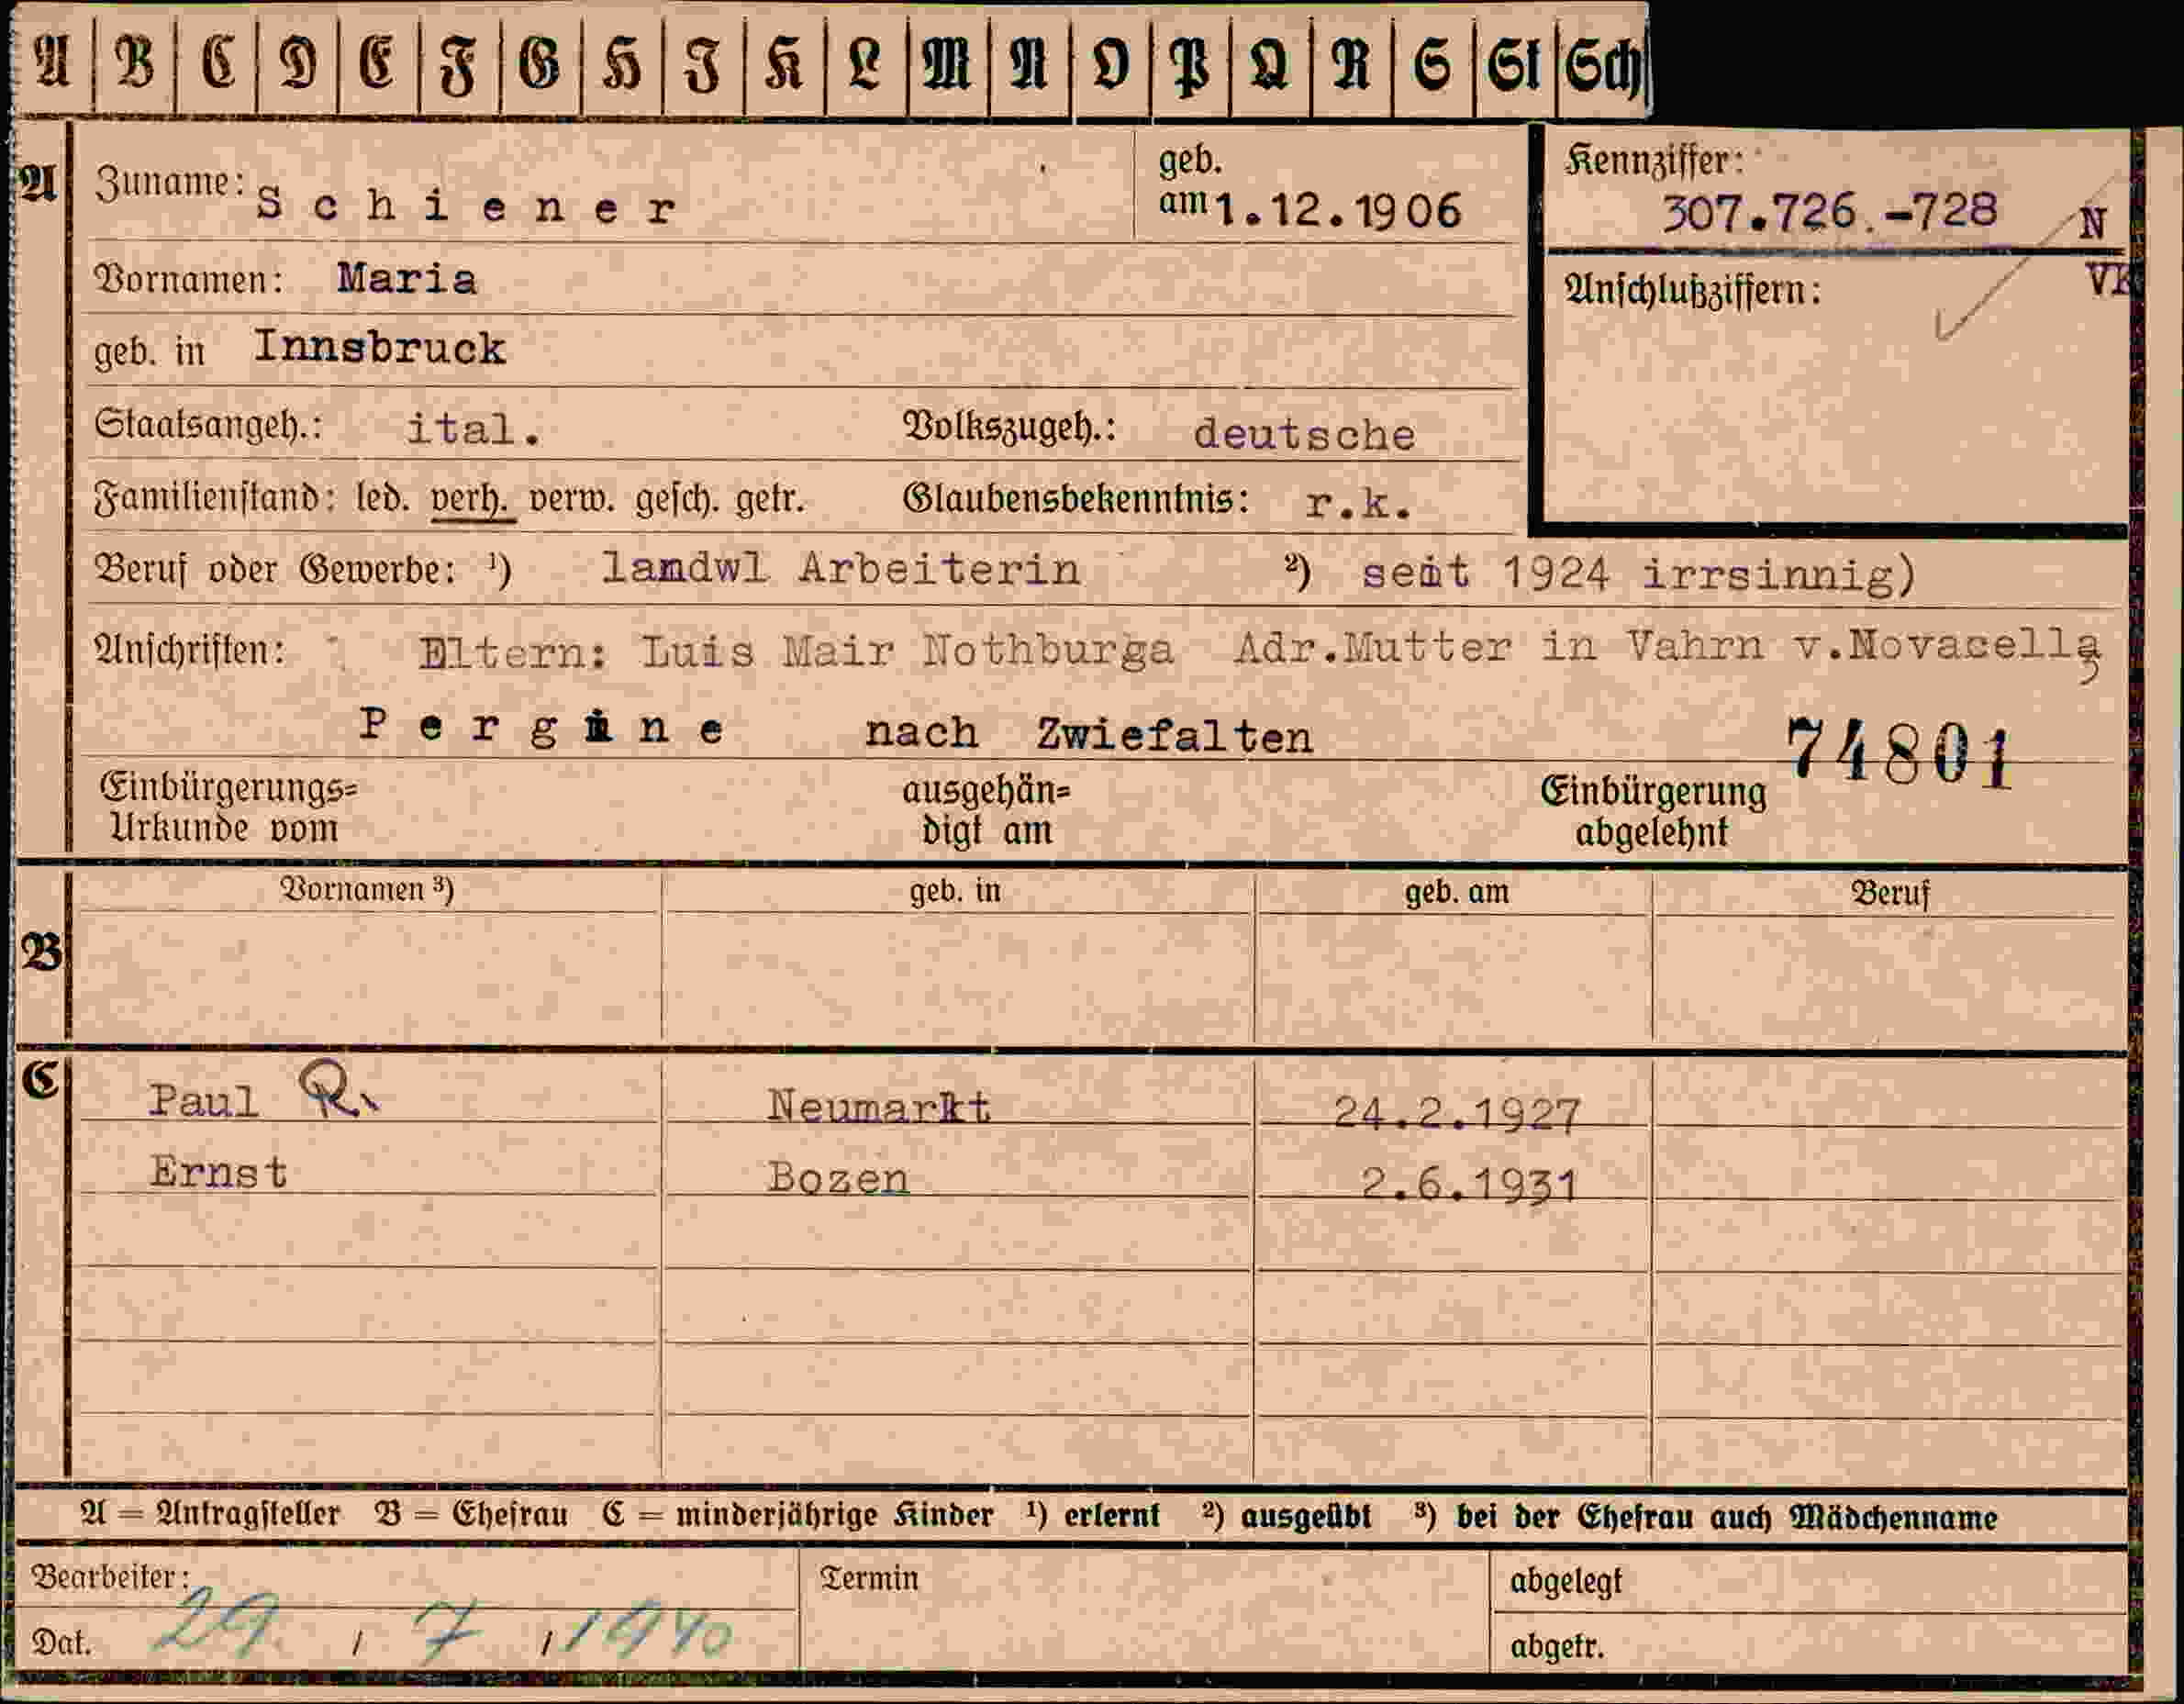 A B C D E F G H I K L M N O P Q R S St Sch
A Zuname: Schiener geb. am 1.12.1906 Kennziffer: 307.726.-728 N
Vornamen: Maria Anschlußziffern:
geb. in Innsbruck
Staatsangeh.: ital. Volkszugeh.: deutsche
Familienstand: led. verh. verw. gesch. getr. Glaubensbekenntnis: r.k.
Beruf oder Gewerbe: ¹) landwl Arbeiterin ²) seit 1924 irrsinnig)
Anschriften: Eltern: Luis Mair Nothburga Adr.Mutter in Vahrn v.Novacella
Pergine nach Zwiefalten 74801
Einbürgerungs= Urkunde vom ausgehän= digt am Einbürgerung abgelehnt
B Vornamen ³) geb. in geb. am Beruf
C Paul Neumarkt 24.2.1927
Ernst Bozen 2.6.1931
A = Antragsteller B = Ehefrau C = minderjährige Kinder ¹) erlernt ²) ausgeübt ³) bei der Ehefrau auch Mädchenname
Bearbeiter: Termin abgelegt
Dat. 29 / 7 / 1940 abgetr.